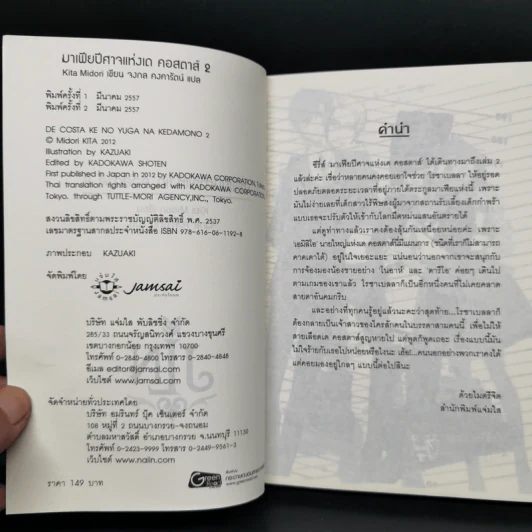 มาเฟียปีศาจแห่งเด คอสตาส์ 2
Kita Midori เขียน จงกล คงคารัตน์ แปล
พิมพ์ครั้งที่ 1 มีนาคม 2557
พิมพ์ครั้งที่ 2 มีนาคม 2557
DE COSTA KE NO YUGA NA KEDAMONO 2
© Midori KITA 2012
Illustration by KAZUAKI
Edited by KADOKAWA SHOTEN
First published in Japan in 2012 by KADOKAWA CORPORATION, Tokyo.
Thai translation rights arranged with KADOKAWA CORPORATION,
Tokyo. through TUTTLE-MORI AGENCY,INC., Tokyo.
สงวนลิขสิทธิ์ตามพระราชบัญญัติลิขสิทธิ์ พ.ศ. 2537
เลขมาตรฐานสากลประจำหนังสือ ISBN 978-616-06-1192-8
ภาพประกอบ KAZUAKI
จัดพิมพ์โดย
jamsai
บริษัท แจ่มใส พับลิชชิ่ง จำกัด
285/33 ถนนจรัญสนิทวงศ์ แขวงบางขุนศรี
เขตบางกอกน้อย กรุงเทพฯ 10700
โทรศัพท์ 0-2840-4800 โทรสาร 0-2840-4848
อีเมล editor@jamsai.com
เว็บไซต์ www.jamsai.com
จัดจำหน่ายทั่วประเทศโดย
บริษัท อมรินทร์ บุ๊ค เซ็นเตอร์ จำกัด
108 หมู่ที่ 2 ถนนบางกรวย-จงถนอม
ตำบลมหาสวัสดิ์ อำเภอบางกรวย จ.นนทบุรี 11130
โทรศัพท์ 0-2423-9999 โทรสาร 0-2449-9561-3
เว็บไซต์ www.naiin.com
ราคา 149 บาท
Green
คำนำ
ซีรี่ส์ มาเฟียปีศาจแห่งเด คอสตาส์ ได้เดินทางมาถึงเล่ม 2
แล้วล่ะค่ะ เชื่อว่าหลายคนคงคอยเอาใจช่วย โรซาเบลลา ให้อยู่รอด
ปลอดภัยตลอดระยะเวลาที่อยู่ภายใต้ตระกูลมาเฟียแห่งนี้ เพราะ
มันไม่ง่ายเลยที่เด็กสาวไร้พิษสงผู้มาจากสถานรับเลี้ยงเด็กกำพร้า
แบบเธอจะปรับตัวให้เข้ากับโลกมืดหม่นแสนอันตรายได้
แต่ดูท่าทางแล้วเราคงต้องลุ้นกันเหนื่อยหน่อยค่ะ เพราะ
'เอมิลิโอ' นายใหญ่แห่งเด คอสตาส์ดันมีแผนการ (ชนิดที่เราก็ไม่สามารถ
คาดเดาได้) อยู่ในใจเยอะแยะ แน่นอนว่านอกจากเขาจะสนุกกับ
การจ้องมองน้องชายอย่าง 'ไนอาห์' และ 'ดาริโอ' ค่อยๆ เดินไปตาม
เกมของเขาแล้ว โรซาเบลลาก็เป็นอีกหนึ่งคนที่ไม่เคยคลาด
สายตาอันคมกริบ
และอย่างที่ทุกคนรู้อยู่แล้วนะคะว่าสุดท้าย...โรซาเบลลาก็
ต้องกลายเป็นเจ้าสาวของใครสักคนในบรรดาสามคนนี้ เพื่อไม่ให้
สายเลือดเด คอสตาส์สูญหายไป แต่พูดก็พูดเถอะ เรื่องแบบนี้มัน
ไม่ใจร้ายกับเธอไปหน่อยหรือไงนะ เฮ้อ!...คนนอกอย่างพวกเราคงได้
แต่คอยมองอยู่ไกลๆ แบบนี้ต่อไปสินะ
ด้วยไมตรีจิต
สำนักพิมพ์แจ่มใส